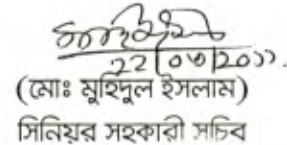 22/06/2011.
(মোঃ মুহিদুল ইসলাম)
সিনিয়র সহকারী সচিব